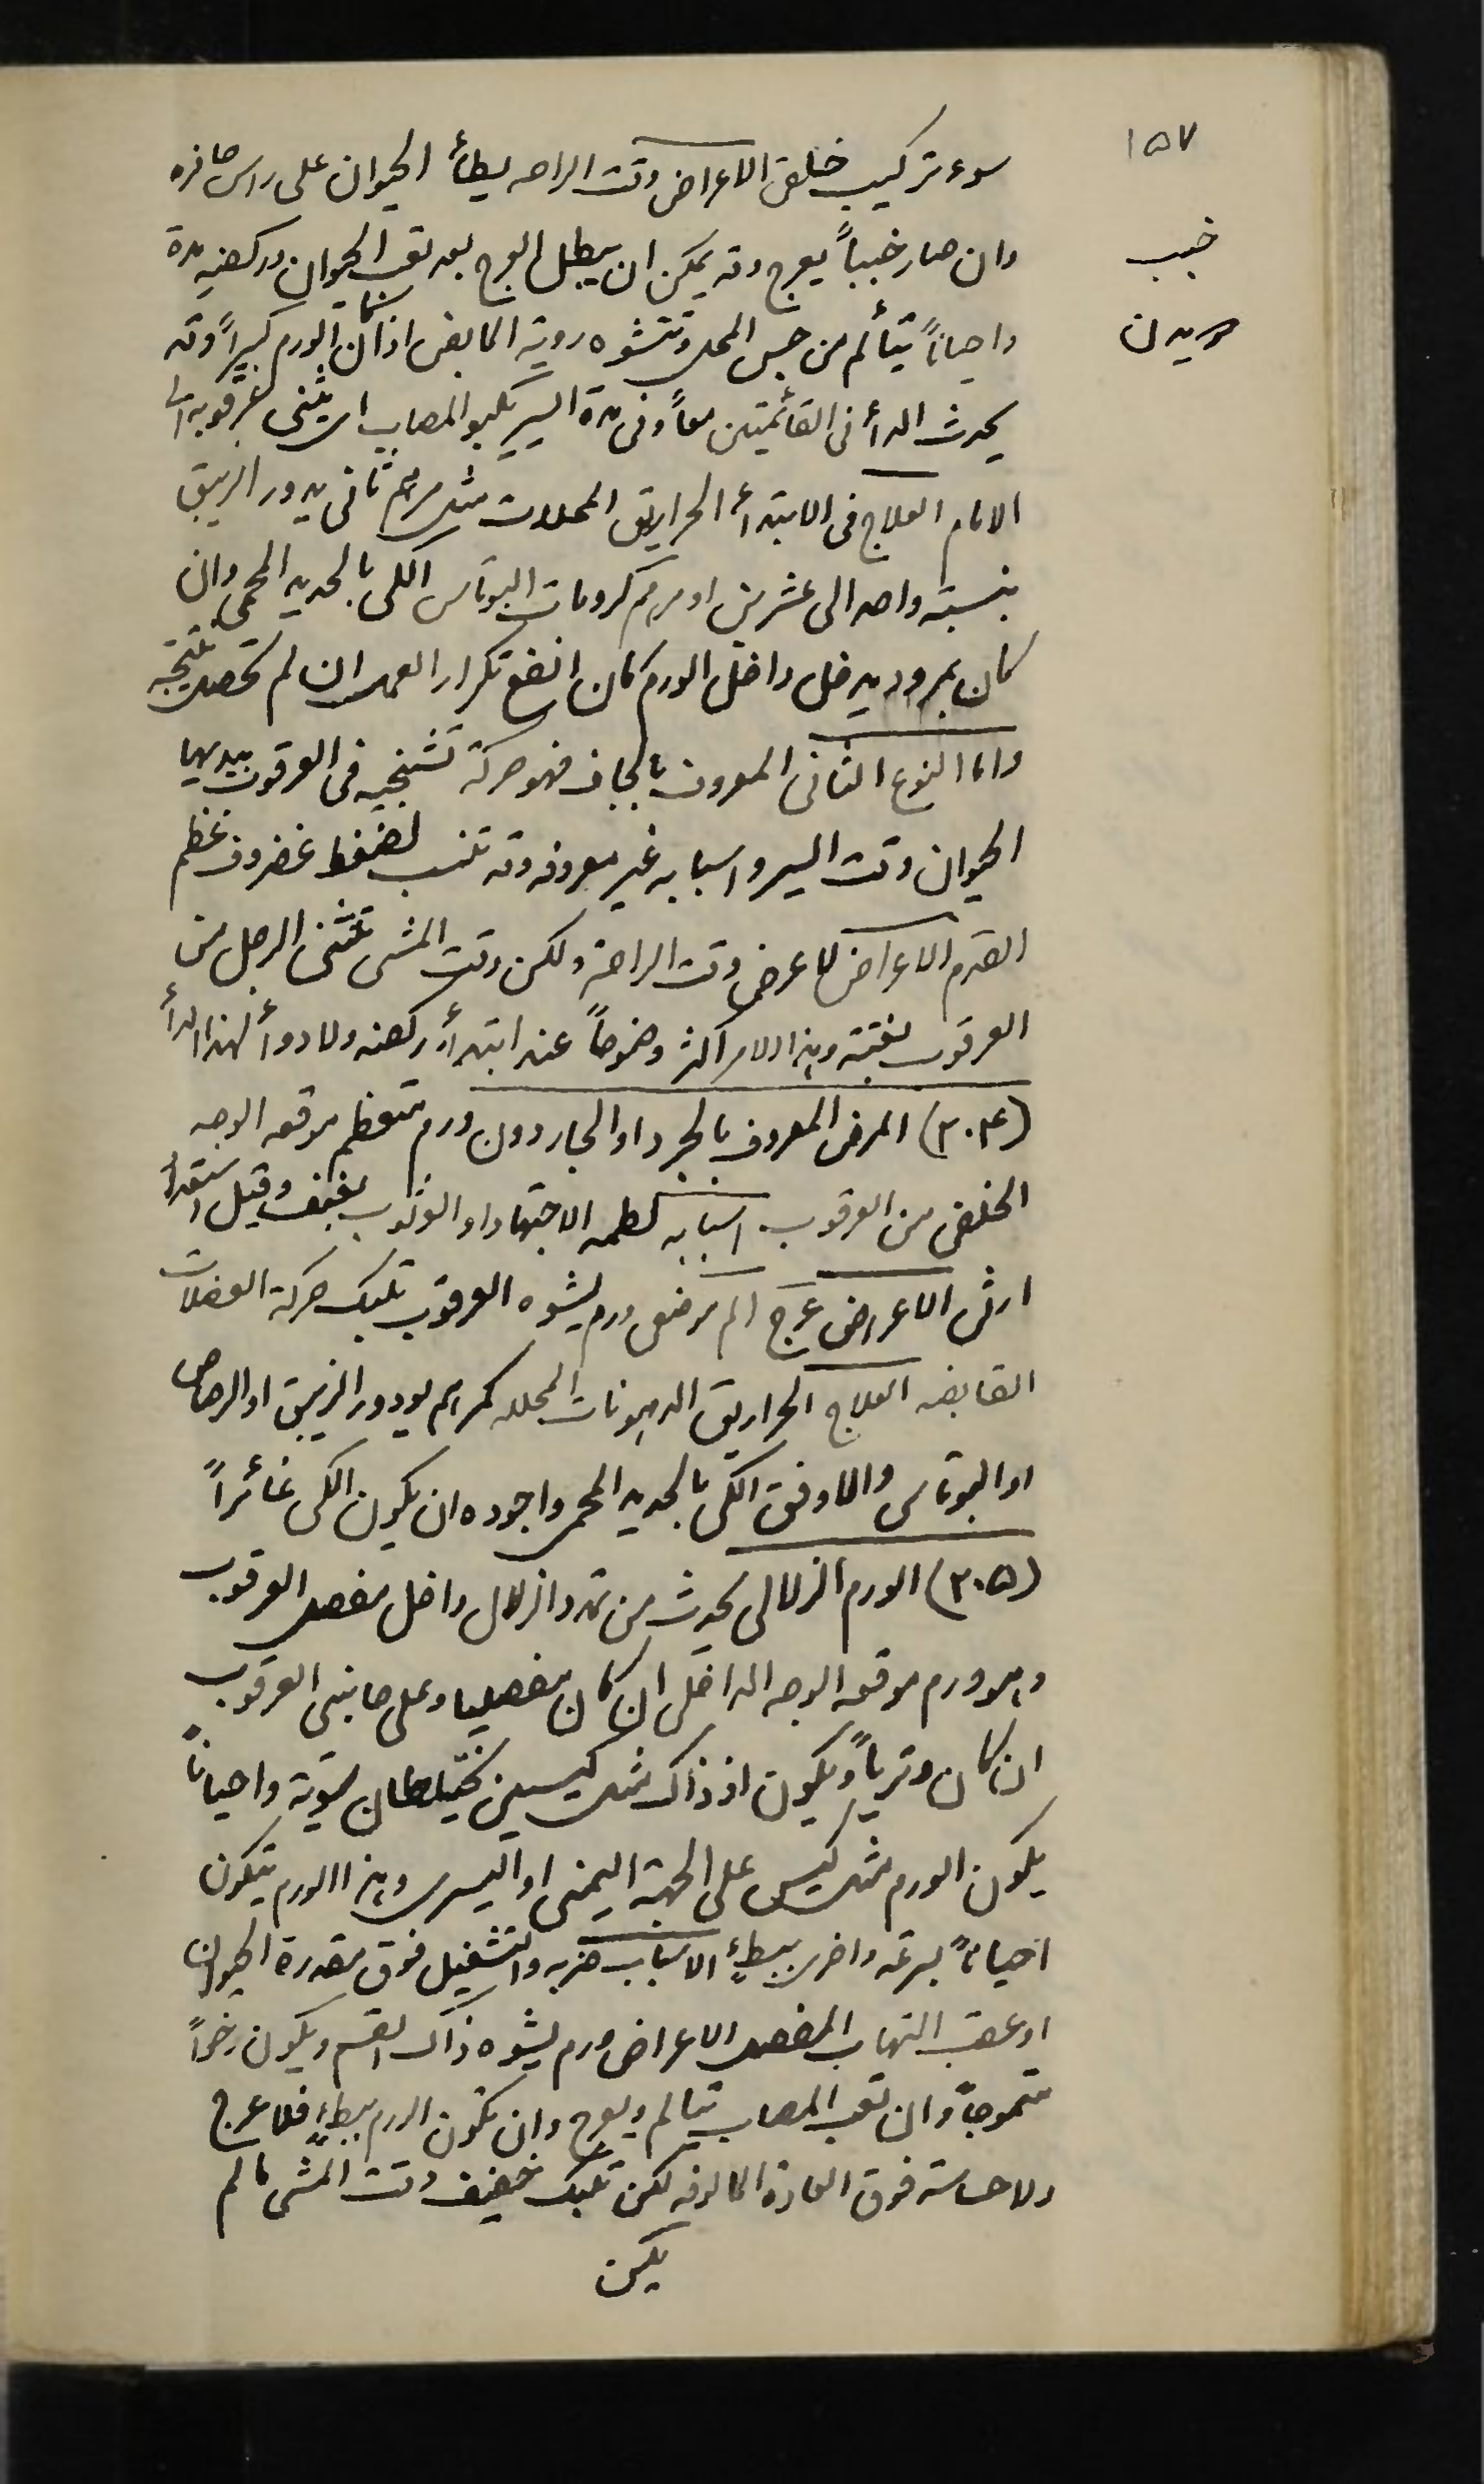 ١٥٧
سوء تركيب خلقى الاعراض وقت الراحه يطأ الحيوان على راس حافره
خبب
وان صار خبباً يعرج وقد يمكن ان يبطل العرج بعد تعب الحيوان وركضه مدة
واحياناً يتألم من جس المحل وتتشوه روية المابض اذا كان الورم كبيراً وقد
يحدث الدأ فى القائمتين معاً وفى مدة السير يكبو المصاب اى يثنى عرقوبه الى
الامام العلاج فى الابتدأ الحراريق المحللات مثل مرهم ثانى يدور الزيبق
بنسبة واحد الى عشرين او مرهم كرومات البوتاس الكى بالحديد المحمى وان
كان بمرود يدخل داخل الورم كان انفع تكرار العمل ان لم تحصل نتيجه
واما النوع الثانى المعروف بالجاف فهو حركة تشنجيه فى العرقوب يبديها
الحيوان وقت السير واسبابه غير معروفه وقد تنسب لضغط غضروف عظم
القدم الاعراض لا عرض وقت الراحة ولكن وقت المشى تنثنى الرجل من
العرقوب بغتة وهذا الامر اكثر وضوحاً عند ابتدأ ركضه ولا دوأ لهذا الدأ
(٣٠٤) المرض المعروف بالجرد او الجاردون ورم متعظم موقعه الوجه
الخلفى من العرقوب. اسبابه لطمه الاجتهاد او الوثوب بعنف وقيل استعداد
ارثى الاعراض عرج الم موضعى ورم يشوه العرقوب تلبك حركة العضلات
القابضه العلاج الحراريق الدهونات المحلله كمرهم يودور الزيبق او الرصاص
او البوتاس والاوفق الكى بالحديد المحمى واجوده ان يكون الكى غائراً
(٣٠٥) الورم الزلالى يحدث من تمدد الزلال داخل مفصل العرقوب
وهو ورم موقعه الوجه الداخلى ان كان مفصليا وعلى جانبى العرقوب
ان كان وترياً ويكون اذ ذاك مثل كيسين يختلطان سوية واحياناً
يكون الورم مثل كيس على الجهة اليمنى او اليسرى وهذا الورم يتكون
احياناً بسرعه واخرى ببطءٍ الاسباب ضربه والتشغيل فوق مقدرة الحيوان
او عقب التهاب المفصل الاعراض ورم يشوه ذاك القسم ويكون رخواً
متموجاً وان تعب المصاب يتالم ويعرج وان تكون الورم ببطءٍ فلا عرج
ولا حساسة فوق العادة المالوفه لكن تلبك خفيف وقت المشى مالم
يكن